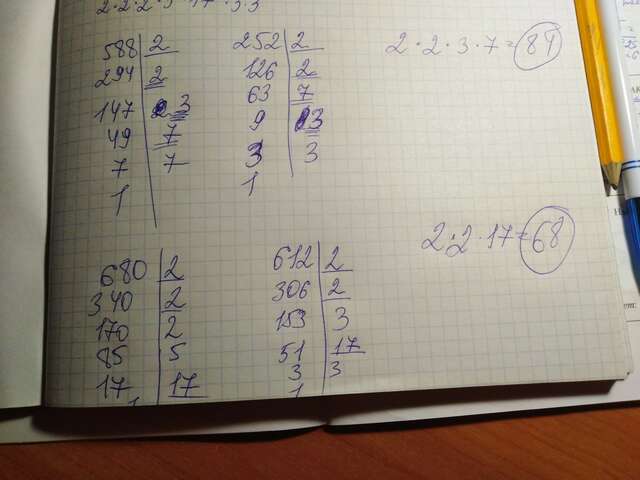 2·2·2·5·17·3·3
588 | 2
294 | 2
147 | 3
49 | 7
7 | 7
1
252 | 2
126 | 2
63 | 7
9 | 3
3 | 3
1
2·2·3·7=84
680 | 2
340 | 2
170 | 2
85 | 5
17 | 17
1
612 | 2
306 | 2
153 | 3
51 | 17
3 | 3
1
2·2·17=68